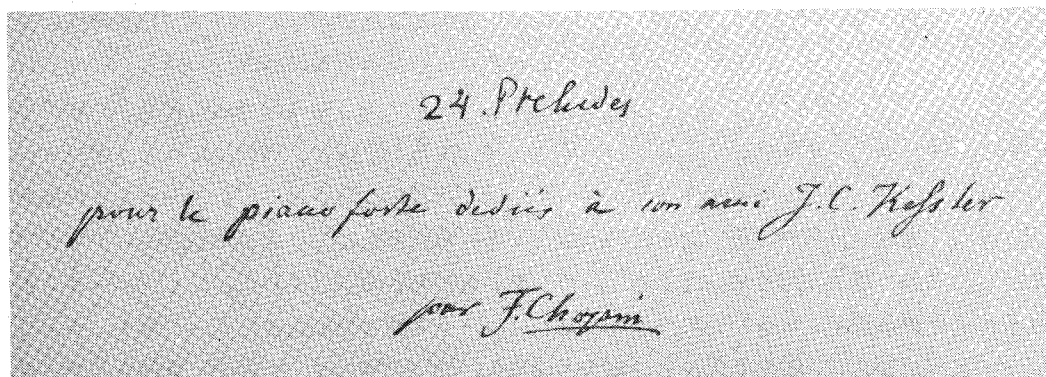 24 Preludes
pour le piano forte dediés à son ami J. C. Kessler
par F. Chopin